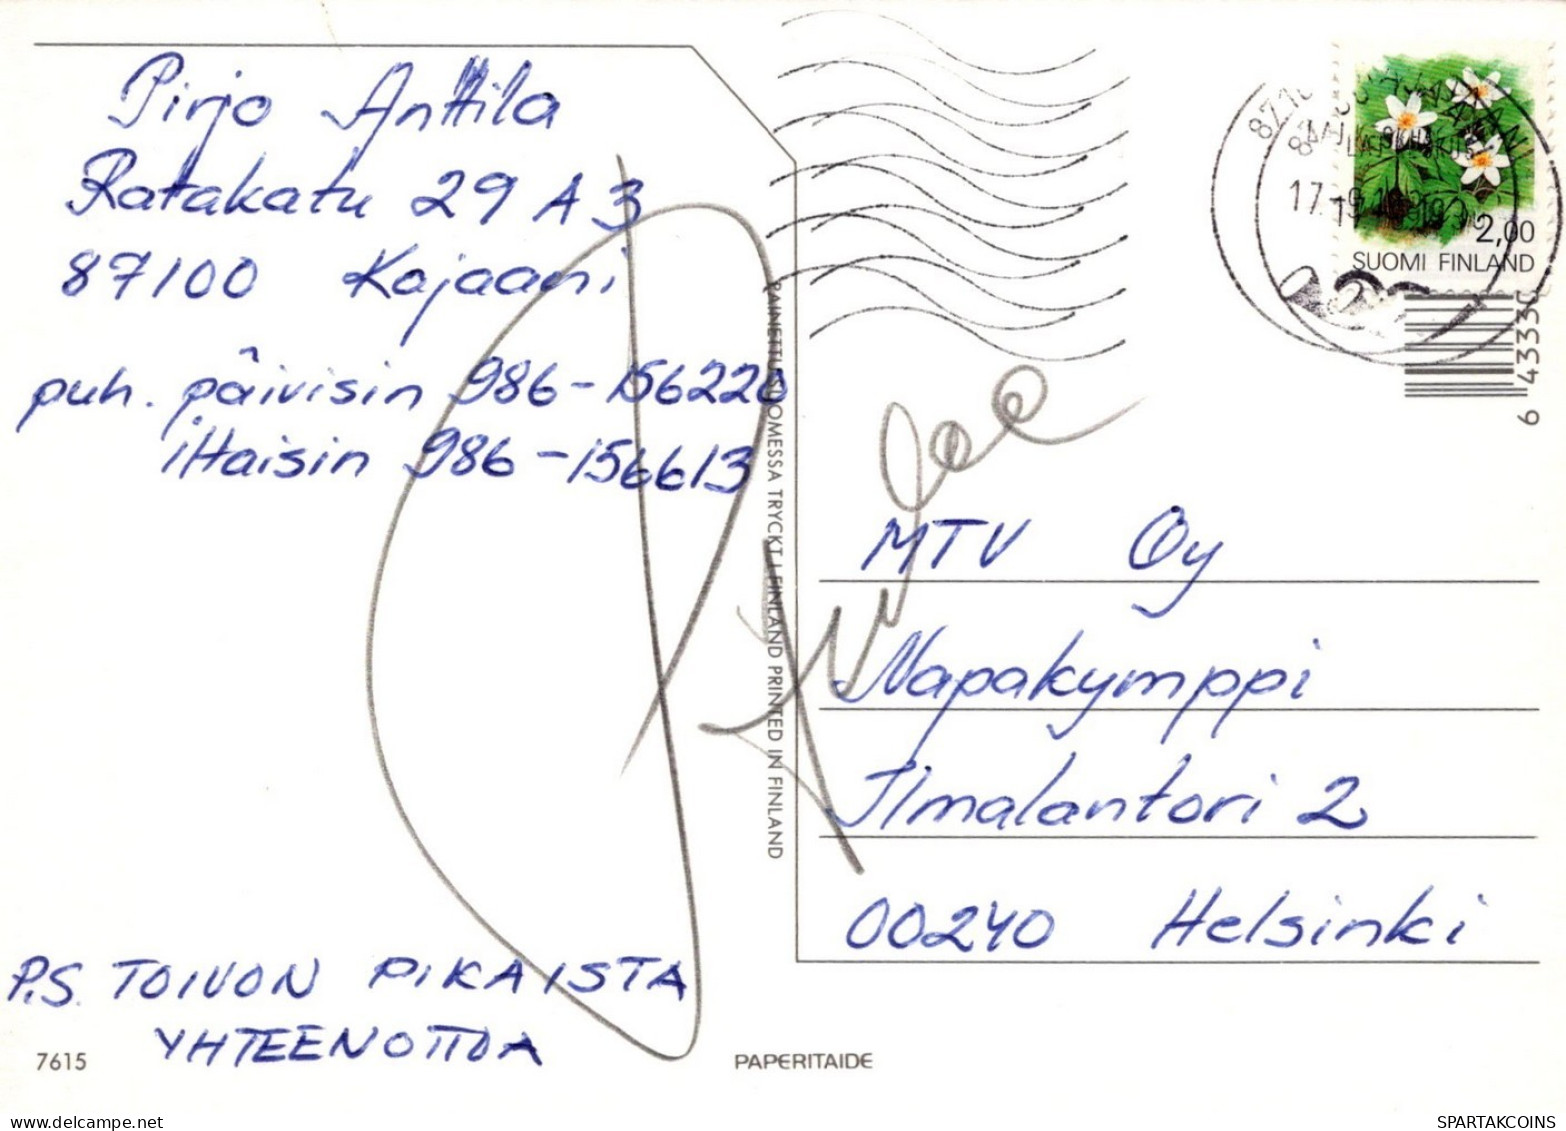 Pirjo Anttila
Ratakatu 29 A 3
87100 Kajaani
puh. päivisin 986-156220
iltaisin 986-156613
P.S. TOIVON PIKAISTA
YHTEENOTTOA
7615
PAINETTU SUOMESSA TRYCKT I FINLAND PRINTED IN FINLAND
PAPERITAIDE
2,00
SUOMI FINLAND
6 43330
MTV Oy
Napakymppi
Ilmalantori 2
00240 Helsinki
SPARTAKCOINS